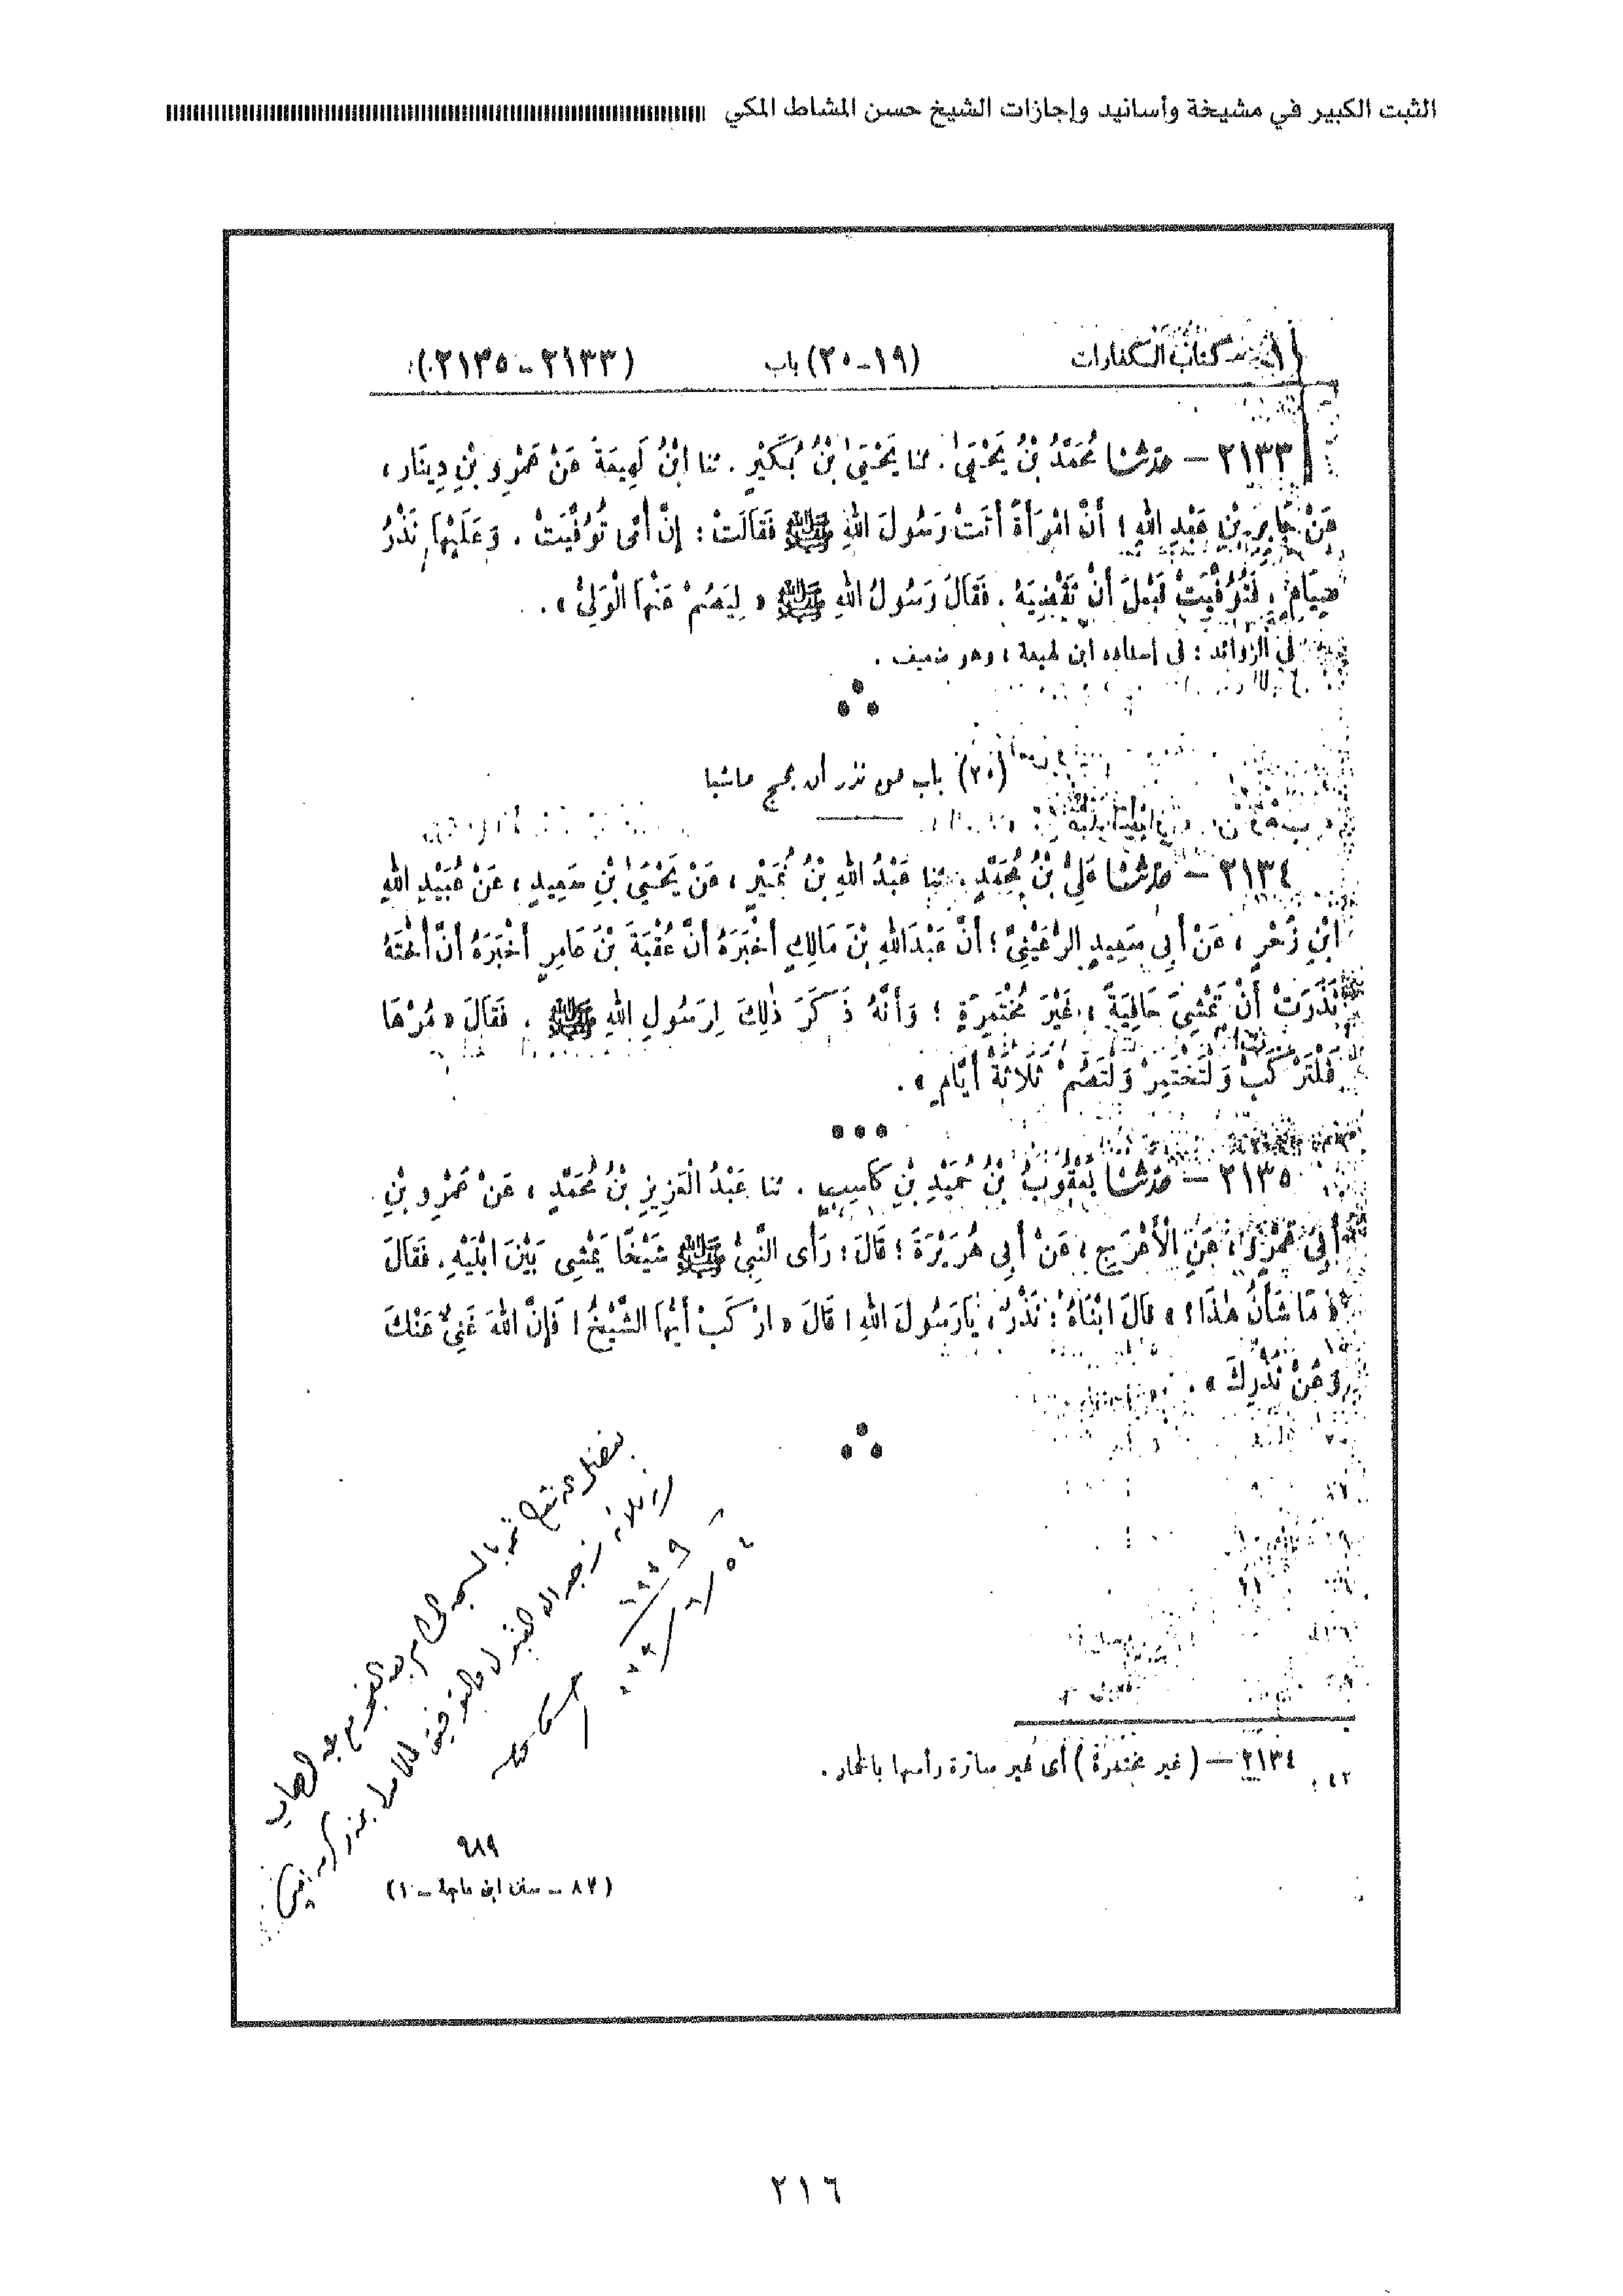 الثبت الكبير في مشيخة وأسانيد وإجازات الشيخ حسن المشاط المكي
كتاب الكفارات
(١٩-٢٠) باب
(٢١٣٣-٢١٣٥)
٢١٣٣ – حَدَّثَنَا مُحَمَّدُ بْنُ يَحْيَىٰ . ثنا يَحْيَىٰ بْنُ بُكَيْرٍ . ثنا ابْنُ لَهِيعَةَ عَنْ عَمْرِو بْنِ دِينَارٍ ،
عَنْ جَابِرِ بْنِ عَبْدِ اللهِ ؛ أَنَّ امْرَأَةً أَتَتْ رَسُولَ اللهِ ﷺ فَقَالَتْ : إِنَّ أُمِّى تُوُفِّيَتْ . وَعَلَيْهَا نَذْرُ
صِيَامٍ . فَتُوُفِّيَتْ قَبْلَ أَنْ تَقْضِيَهُ . فَقَالَ رَسُولُ اللهِ ﷺ « لِيَصُمْ عَنْهَا الْوَلِىُّ » .
فى الزوائد : فى إسناده ابن لهيعة ، وهو ضعيف .
(٢٠) باب من نذر أن يحج ماشيا
٢١٣٤ – حَدَّثَنَا عَلِىُّ بْنُ مُحَمَّدٍ . ثنا عَبْدُ اللهِ بْنُ نُمَيْرٍ ، عَنْ يَحْيَىٰ بْنِ سَعِيدٍ ، عَنْ عُبَيْدِ اللهِ
ابْنِ زَحْرٍ ، عَنْ أَبِى سَعِيدٍ الرُّعَيْنِىِّ ؛ أَنَّ عَبْدَ اللهِ بْنَ مَالِكٍ أَخْبَرَهُ أَنَّ عُقْبَةَ بْنَ عَامِرٍ أَخْبَرَهُ أَنَّ أُخْتَهُ
نَذَرَتْ أَنْ تَمْشِىَ حَافِيَةً ، غَيْرَ مُخْتَمِرَةٍ ؛ وَأَنَّهُ ذَكَرَ ذٰلِكَ لِرَسُولِ اللهِ ﷺ . فَقَالَ « مُرْهَا
فَلْتَرْكَبْ وَلْتَخْتَمِرْ وَلْتَصُمْ ثَلَاثَةَ أَيَّامٍ » .
٢١٣٥ – حَدَّثَنَا يَعْقُوبُ بْنُ حُمَيْدِ بْنِ كَاسِبٍ . ثنا عَبْدُ الْعَزِيزِ بْنُ مُحَمَّدٍ ، عَنْ عَمْرِو بْنِ
أَبِى عَمْرٍو ، عَنِ الْأَعْرَجِ ، عَنْ أَبِى هُرَيْرَةَ ؛ قَالَ : رَأَى النَّبِىُّ ﷺ شَيْخًا يَمْشِى بَيْنَ ابْنَيْهِ . فَقَالَ
« مَا شَأْنُ هٰذَا ؟ » قَالَ ابْنَاهُ : نَذْرٌ ، يَا رَسُولَ اللهِ ! قَالَ « ارْكَبْ أَيُّهَا الشَّيْخُ ! فَإِنَّ اللهَ غَنِىٌّ عَنْكَ
وَعَنْ نَذْرِكَ » .
٢١٣٤ – ( غير مختمرة ) أى غير ساترة رأسها بالخمار .
٦٨٩
( ٨٧ – سنن ابن ماجة – ١ )
٢١٦